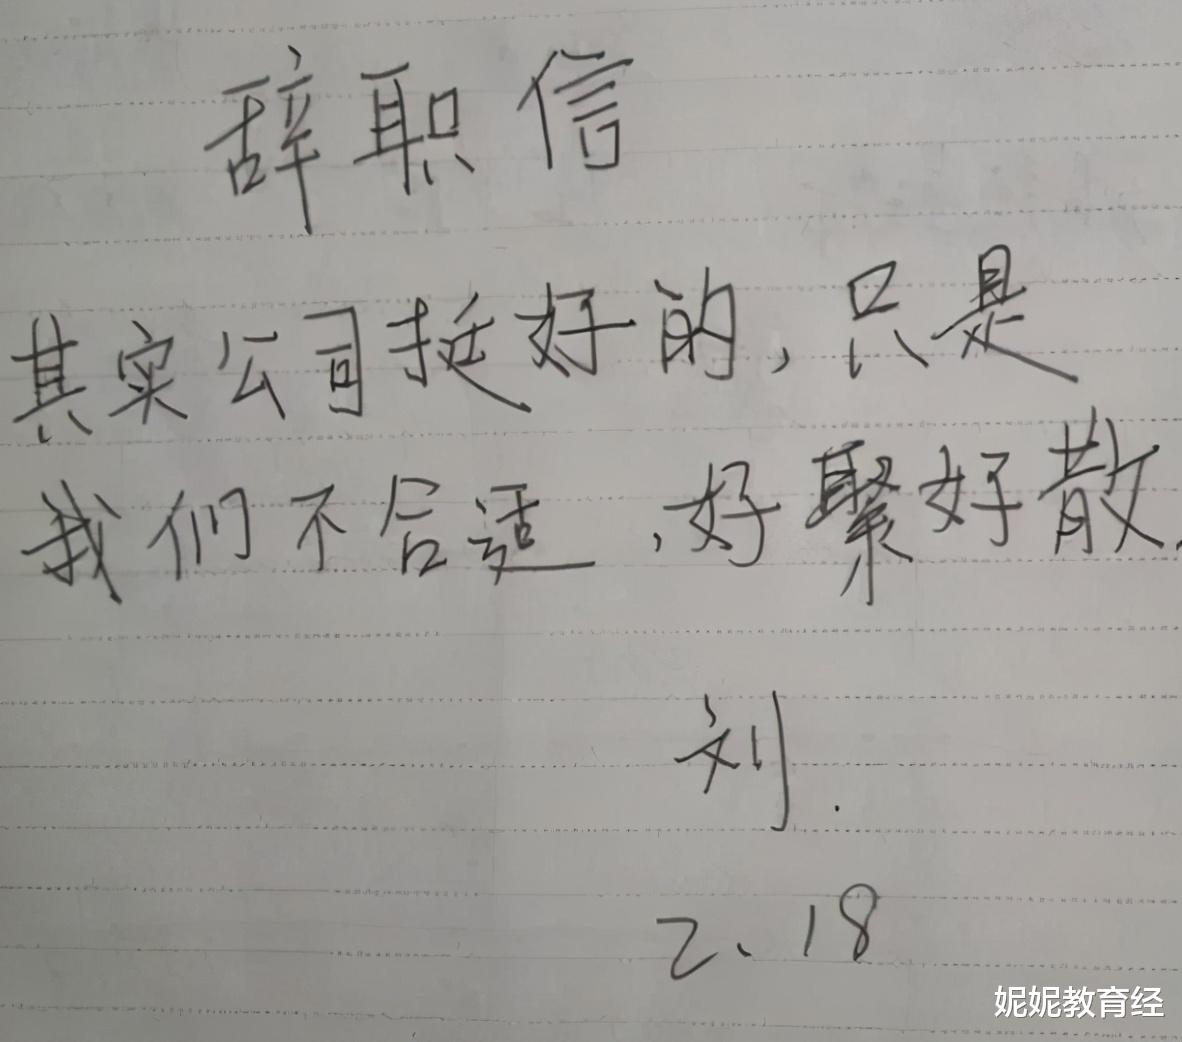 辞职信
其实公司挺好的,只是
我们不合适,好聚好散.
刘.
2、18
妮妮教育经